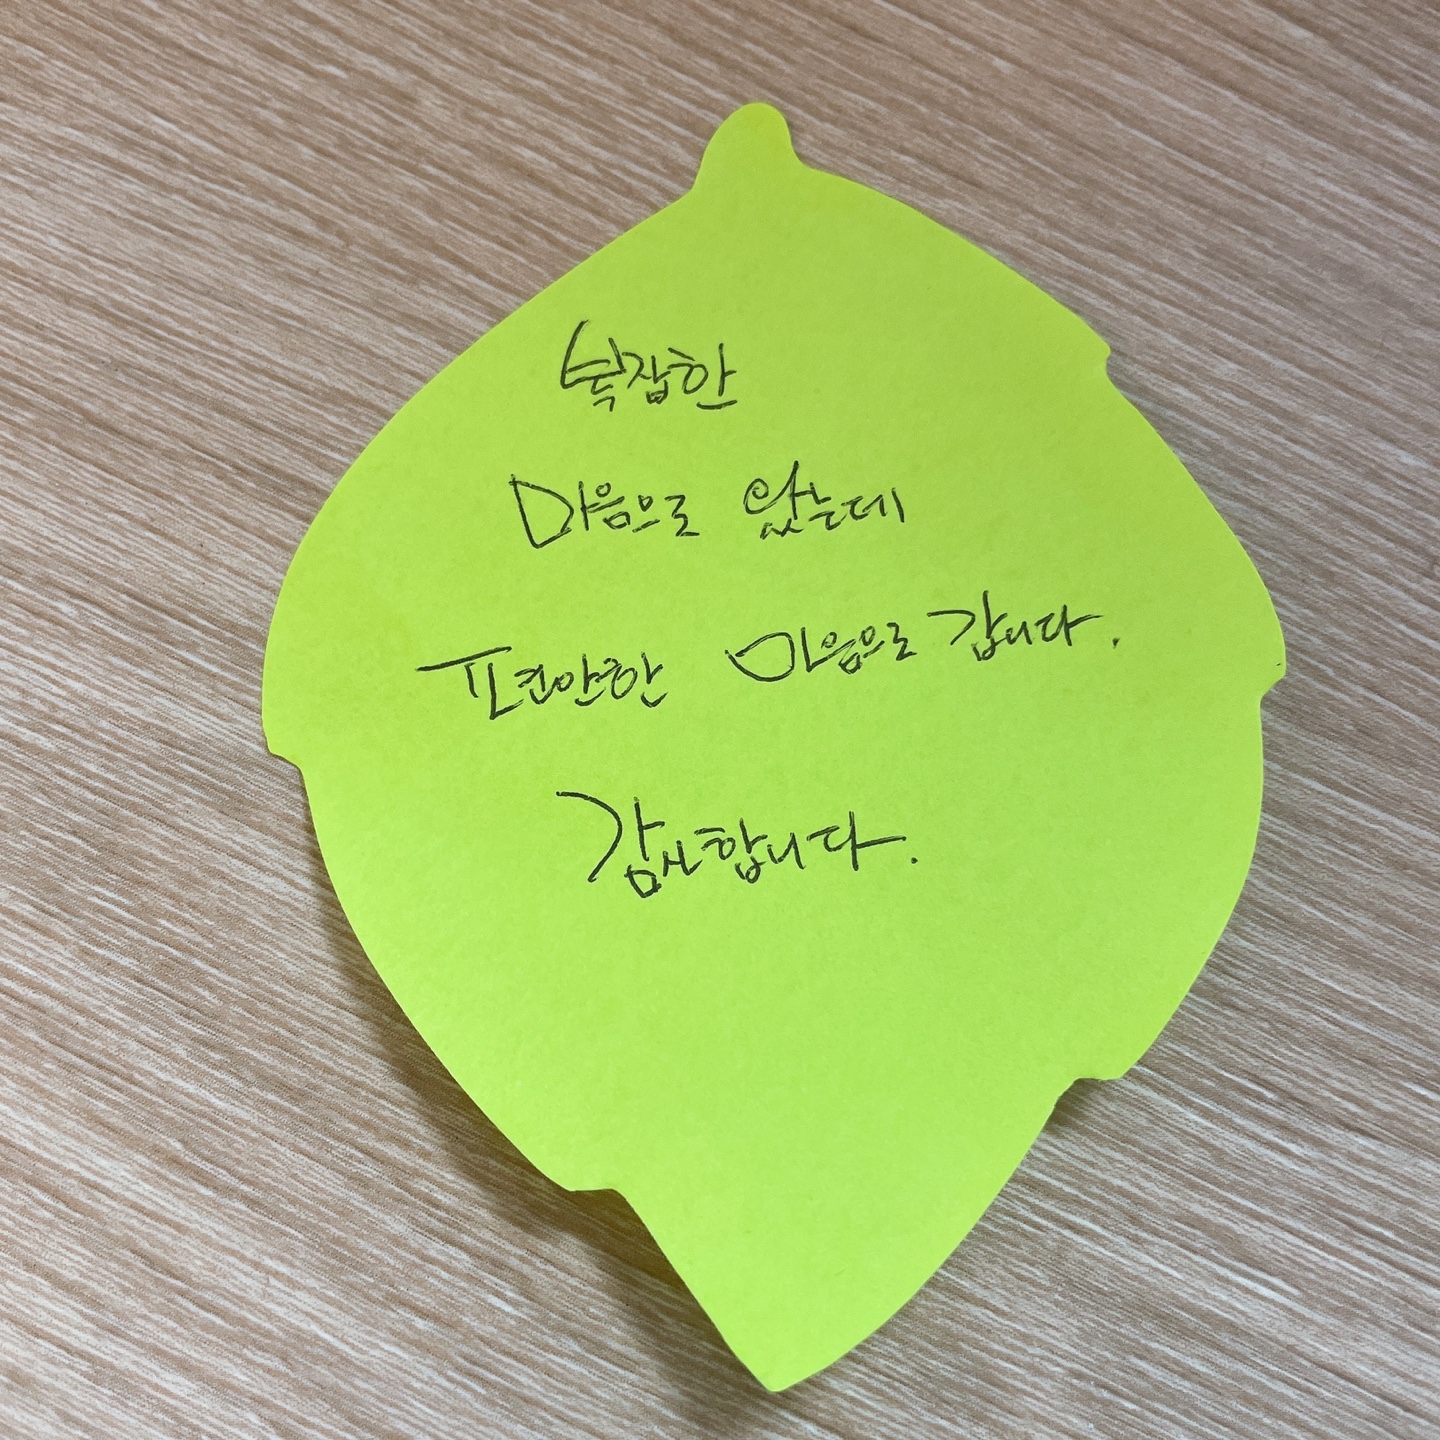 복잡한
마음으로 왔는데
편안한 마음으로 갑니다.
감사합니다.